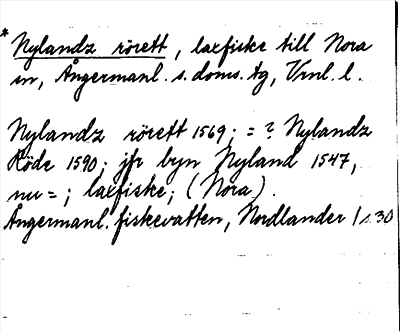 * Nylandz rörett, laxfiske till Nora
sn, Ångermanl. s. doms. tg, Vrnl. l.
Nylandz rörett 1569; = ? Nylandz
Röde 1590; jfr byn Nyland 1547,
nu = ; laxfiske; (Nora).
Ångermanl. fiskevatten, Nordlander 1 s. 30